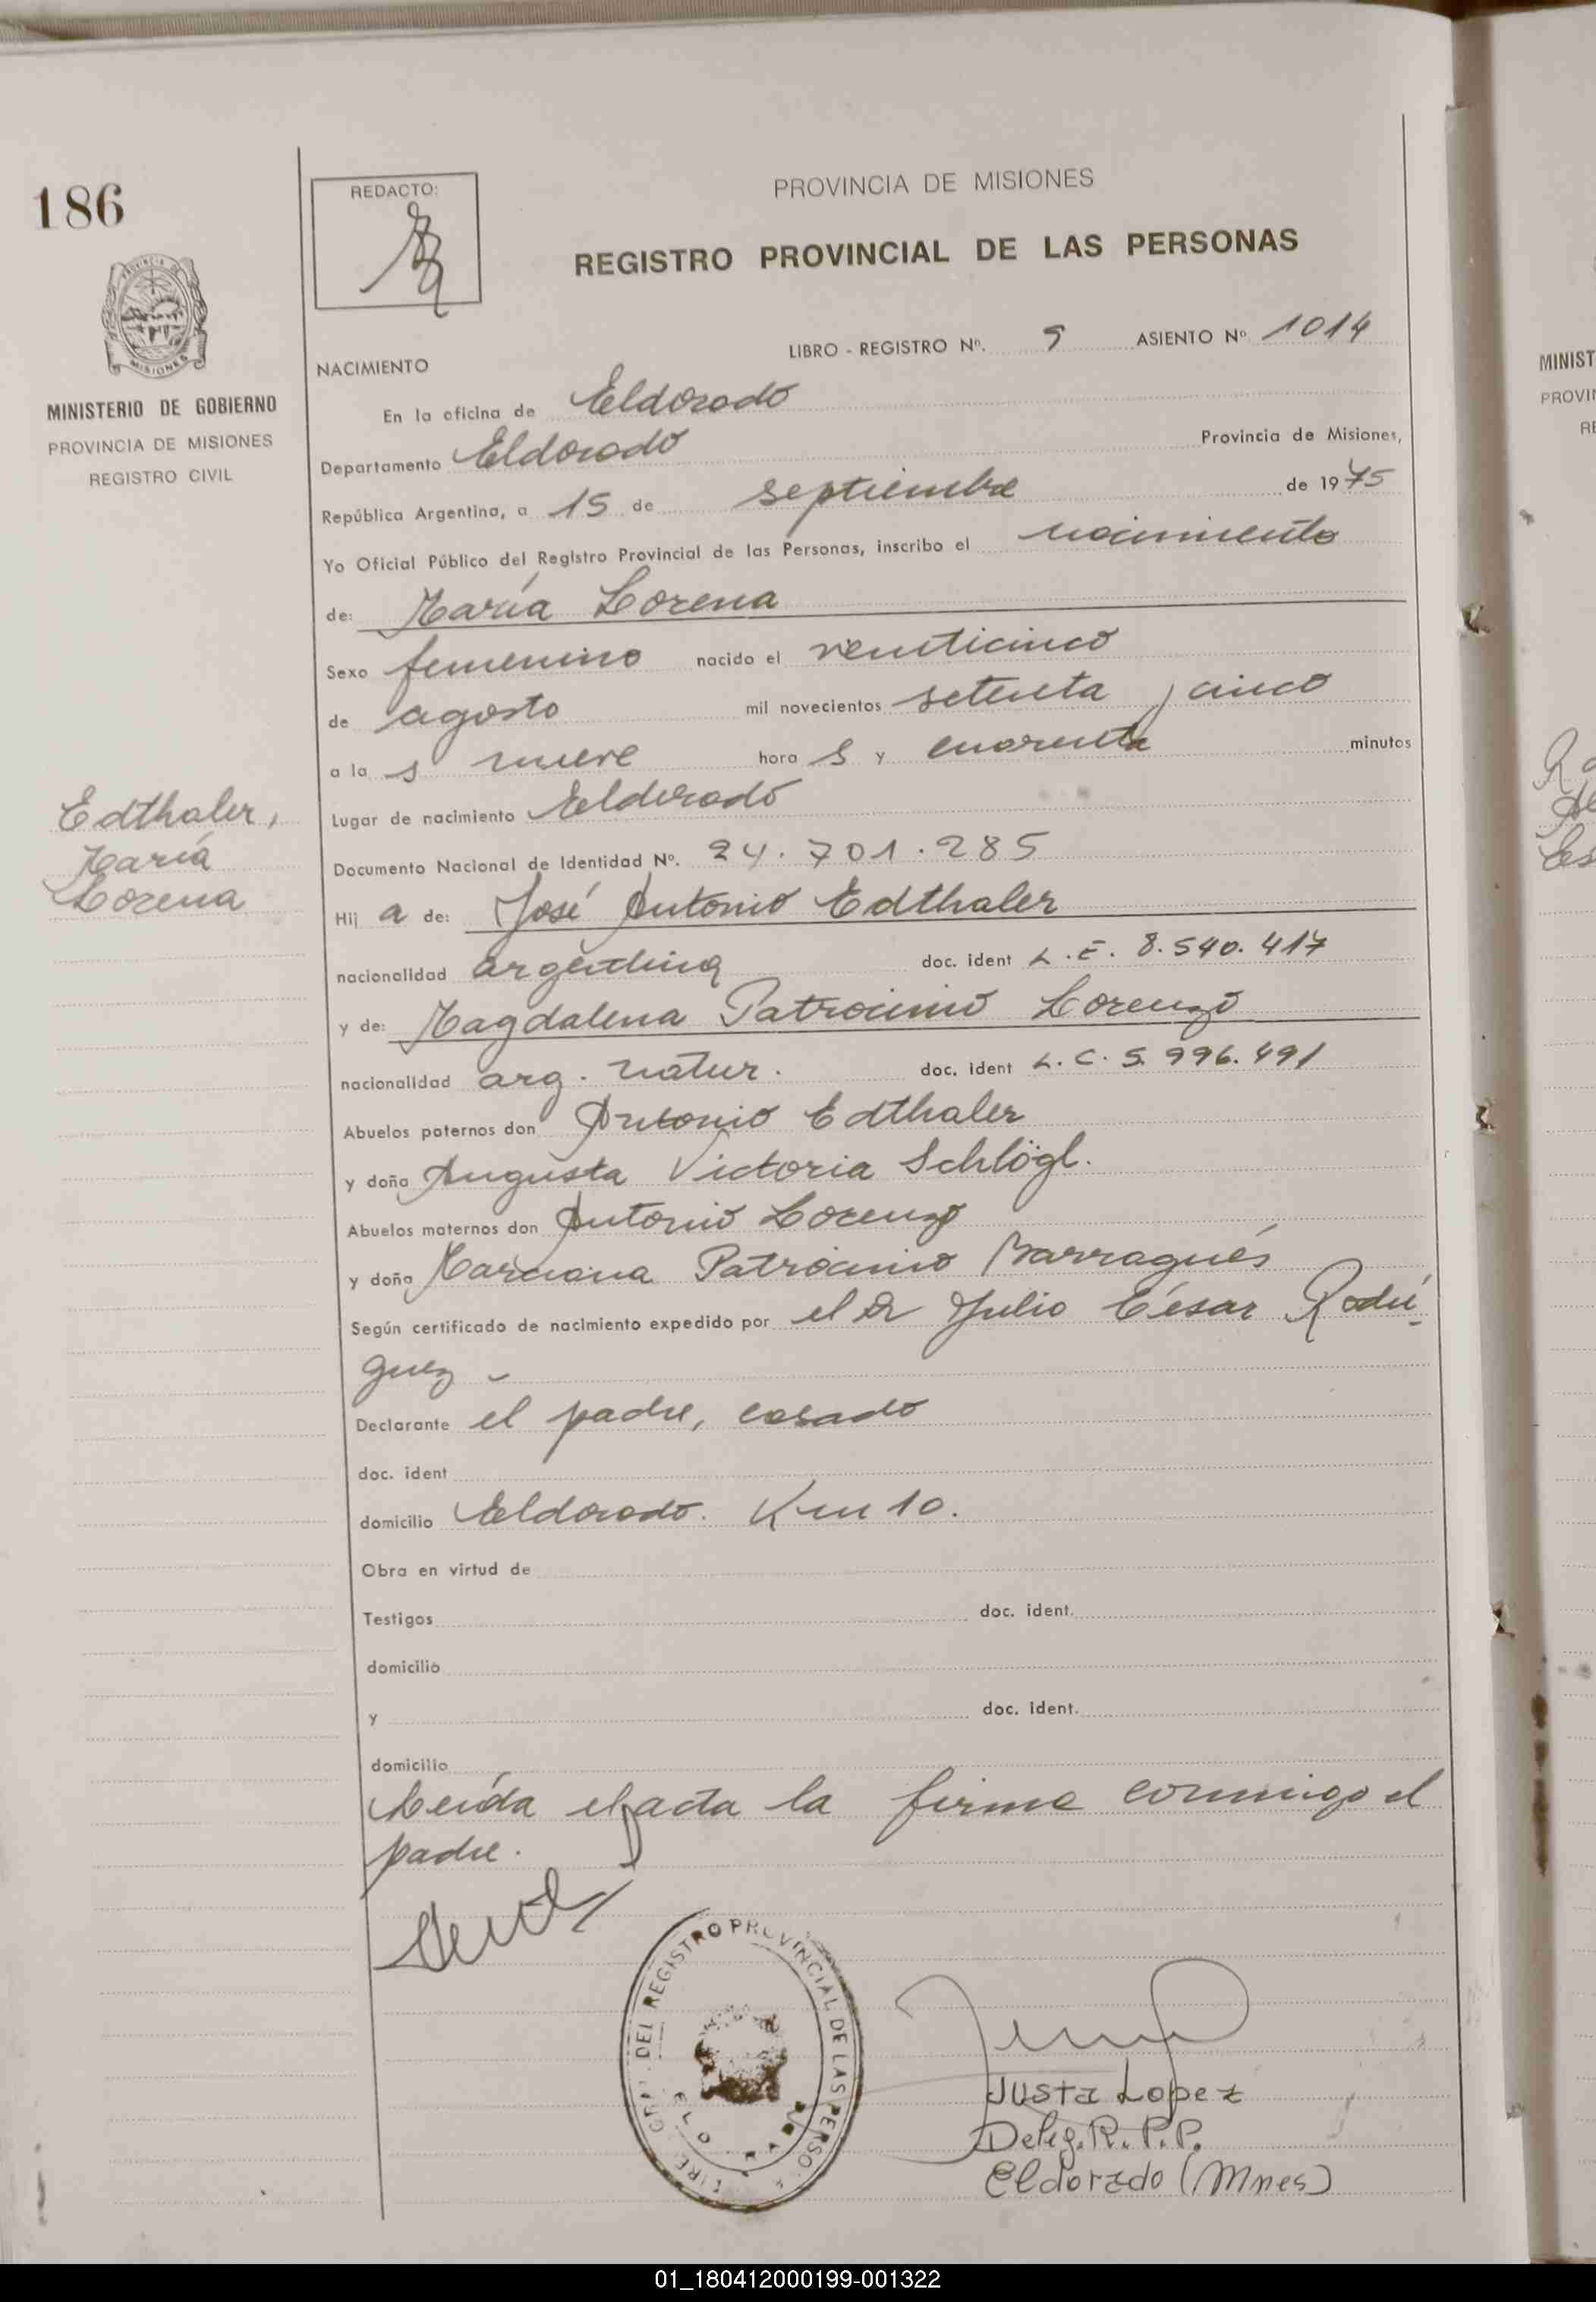 186
REDACTO:
PROVINCIA DE MISIONES
REGISTRO PROVINCIAL DE LAS PERSONAS
MINISTERIO DE GOBIERNO
PROVINCIA DE MISIONES
REGISTRO CIVIL
LIBRO - REGISTRO Nº. 9 ASIENTO Nº 1014
NACIMIENTO
En la oficina de Eldorado
Departamento Eldorado Provincia de Misiones,
República Argentina, a 15 de septiembre de 1975
Yo Oficial Público del Registro Provincial de las Personas, inscribo el nacimiento
de: María Lorena
Sexo femenino nacido el veinticinco
de agosto mil novecientos setenta y cinco
a la s nueve hora s y cuarenta minutos
Lugar de nacimiento Eldorado
Edthaler,
María
Lorena
Documento Nacional de Identidad Nº. 24.701.285
Hij a de: José Antonio Edthaler
nacionalidad argentina doc. ident L.E. 8.540.417
y de: Magdalena Patrocinio Lorenzo
nacionalidad arg. natur. doc. ident L.C. 5.996.491
Abuelos paternos don Antonio Edthaler
y doña Augusta Victoria Schlögl.
Abuelos maternos don Antonio Lorenzo
y doña Marciana Patrocinio Barragués
Según certificado de nacimiento expedido por el Dr Julio César Rodrí-
guez -
Declarante el padre, casado
doc. ident
domicilio Eldorado. Km 10.
Obra en virtud de
Testigos doc. ident.
domicilio
y doc. ident.
domicilio
Leída el acta la firma conmigo el
padre.
DEL REGISTRO PROVINCIAL DE LAS PERSO
Justa Lopez
Deleg. R.P.P.
Eldorado (Mnes)
MINIST
PROVIN
RE
01_180412000199-001322